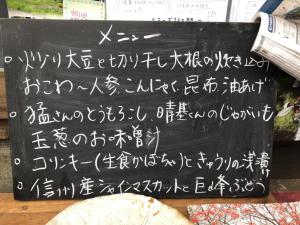 メニュー
○ ジリジリ大豆と切り干し大根の炊き込み
おこわ〜人参、こんにゃく、昆布、油あげ
○ 猛さんのとうもろこし、晴基くんのじゃがいも
玉葱のお味噌汁
○ コリンキー(生食かぼちゃ)ときゅうりの浅漬け
○ 信州産シャインマスカットと巨峰ぶどう